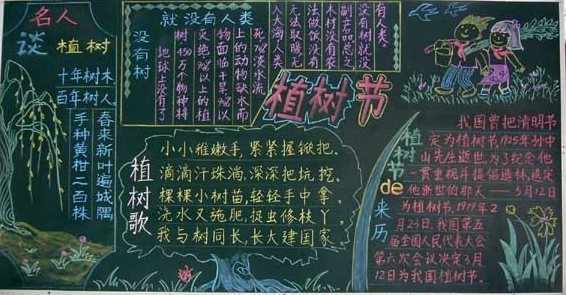 名人
谈 植树
十年树木,
百年树人
春来新叶遍城隅
手种黄柑二百株
就没有人类
没有树
地球上没有了
树450万个物种将
灭绝90%以上的植
物面临干旱90%以
上的动物缺水而
死70%淡水流
入大海人类
无法取暖无
法做饭没有
木材没有农
副产品总之
没有树就没
有人类。
植树节
植树歌
小小稚嫩手,紧紧握锨把,
滴滴汗珠淌,深深把坑挖,
棵棵小树苗,轻轻手中拿,
浇水又施肥,捉虫修枝丫,
我与树同长,长大建国家
植树节de来历
我国曾把清明节
定为植树节,1925年孙中
山先生逝世,为了纪念他
一贯重视并提倡造林,规定
他逝世的那天——3月12日
为植树节。1979年2
月23日,我国第五
届全国人民代表大会
第六次会议决定3月
12日为我国植树节。